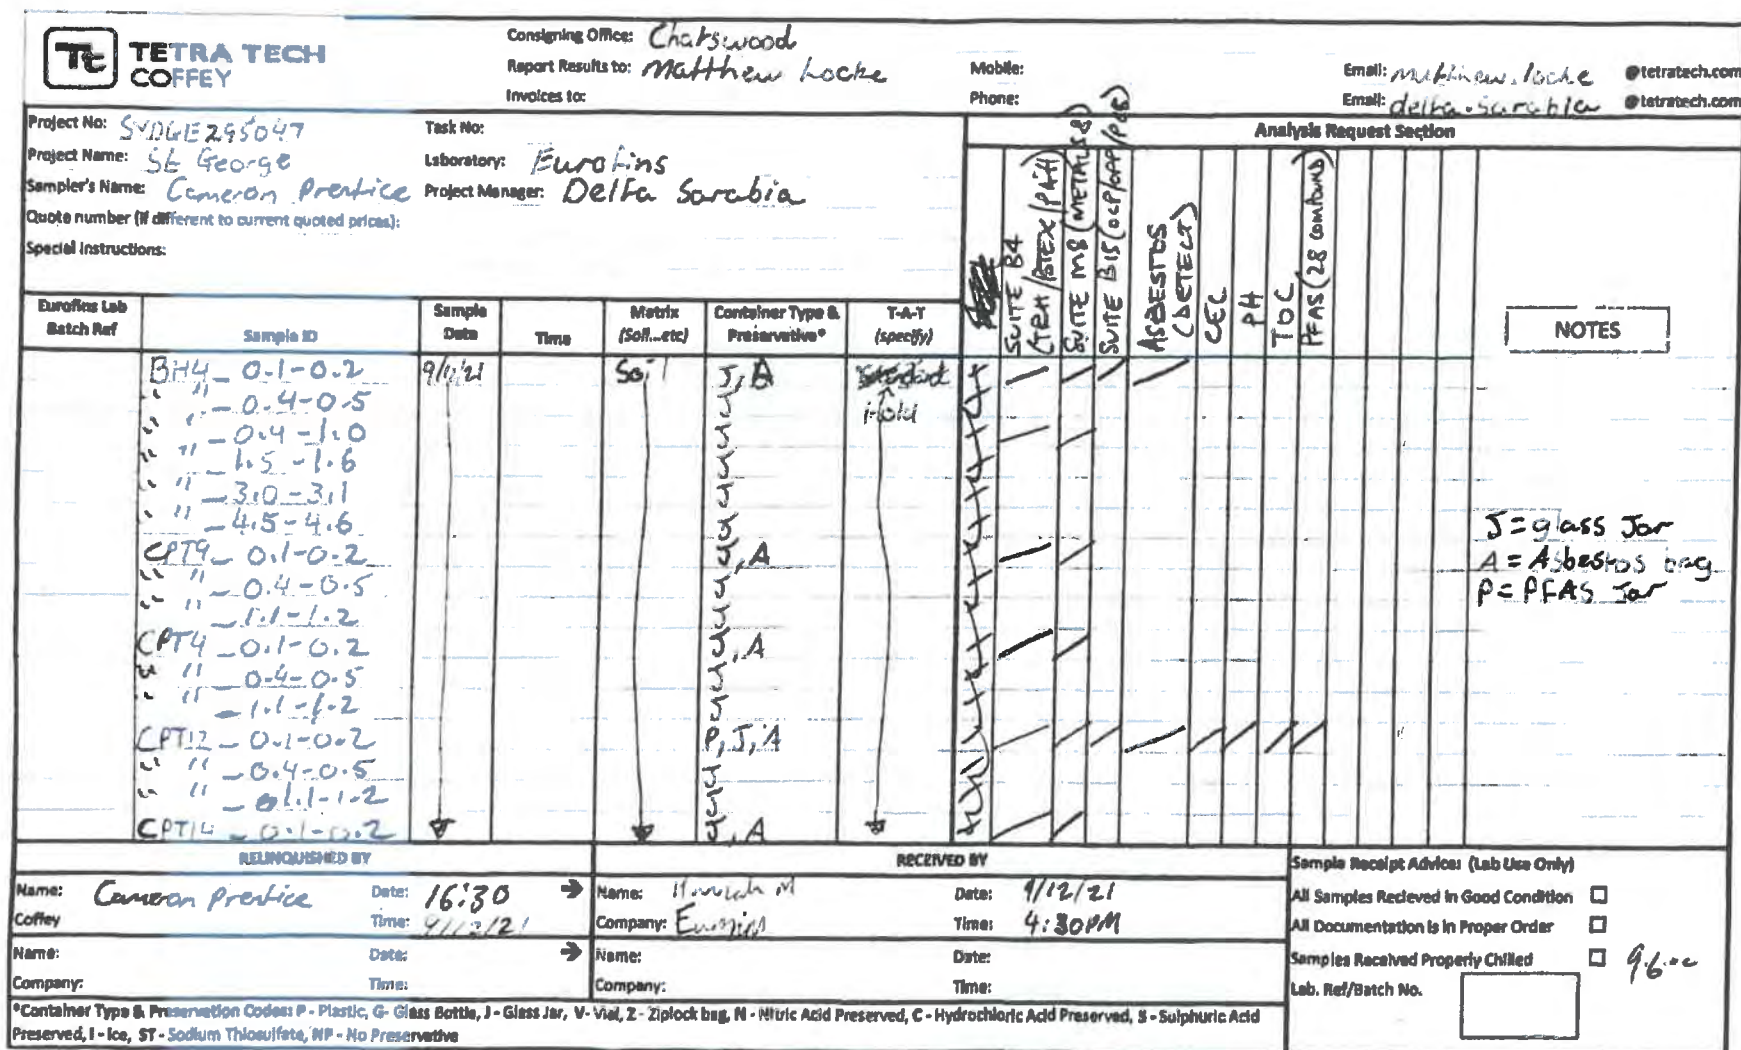 TETRA TECH
COFFEY
Consigning Office: Chatswood
Report Results to: Matthew Locke
Invoices to:
Mobile:
Phone:
Email: matthew.locke @tetratech.com
Email: delfa.sarabia @tetratech.com
Project No: SYDGE295047
Task No:
Project Name: St George
Laboratory: Eurofins
Sampler's Name: Cameron Prentice
Project Manager: Delfa Sarabia
Quote number (if different to current quoted prices):
Special Instructions:
Analysis Request Section
SUITE B4 (TRH/BTEX/PAH)
SUITE M8 (METALS 8)
SUITE B15 (OCP/OPP/PCB)
ASBESTOS (DETECT)
CEC
PH
TOC
PFAS (28 compounds)
NOTES
Eurofins Lab Batch Ref
Sample ID
Sample Date
Time
Matrix (Soil...etc)
Container Type & Preservative*
T-A-T (specify)
BH4_0.1-0.2 9/12/21 Soil J, A Standard
" " _0.4-0.5 Hold
" " _0.4-1.0
" " _1.5-1.6
" " _3.0-3.1
" " _4.5-4.6
CPT9_0.1-0.2 J, A
" " _0.4-0.5
" " _1.1-1.2
CPT4_0.1-0.2 J, A
" " _0.4-0.5
" " _1.1-1.2
CPT12_0.1-0.2 P, J, A
" " _0.4-0.5
" " _1.1-1.2
CPT14_0.1-0.2 J, A
J = glass Jar
A = Asbestos bag
P = PFAS Jar
RELINQUISHED BY
RECEIVED BY
Name: Cameron Prentice Date: 16:30
Coffey Time: 9/12/21
Name: M Date: 9/12/21
Company: Eurofins Time: 4:30PM
Name: Date:
Company: Time:
Name: Date:
Company: Time:
Sample Receipt Advice: (Lab Use Only)
All Samples Recieved in Good Condition
All Documentation is in Proper Order
Samples Received Properly Chilled 9.6
Lab. Ref/Batch No.
*Container Type & Preservation Codes: P - Plastic, G- Glass Bottle, J - Glass Jar, V- Vial, Z - Ziplock bag, N - Nitric Acid Preserved, C - Hydrochloric Acid Preserved, S - Sulphuric Acid
Preserved, I - Ice, ST - Sodium Thiosulfate, NP - No Preservative